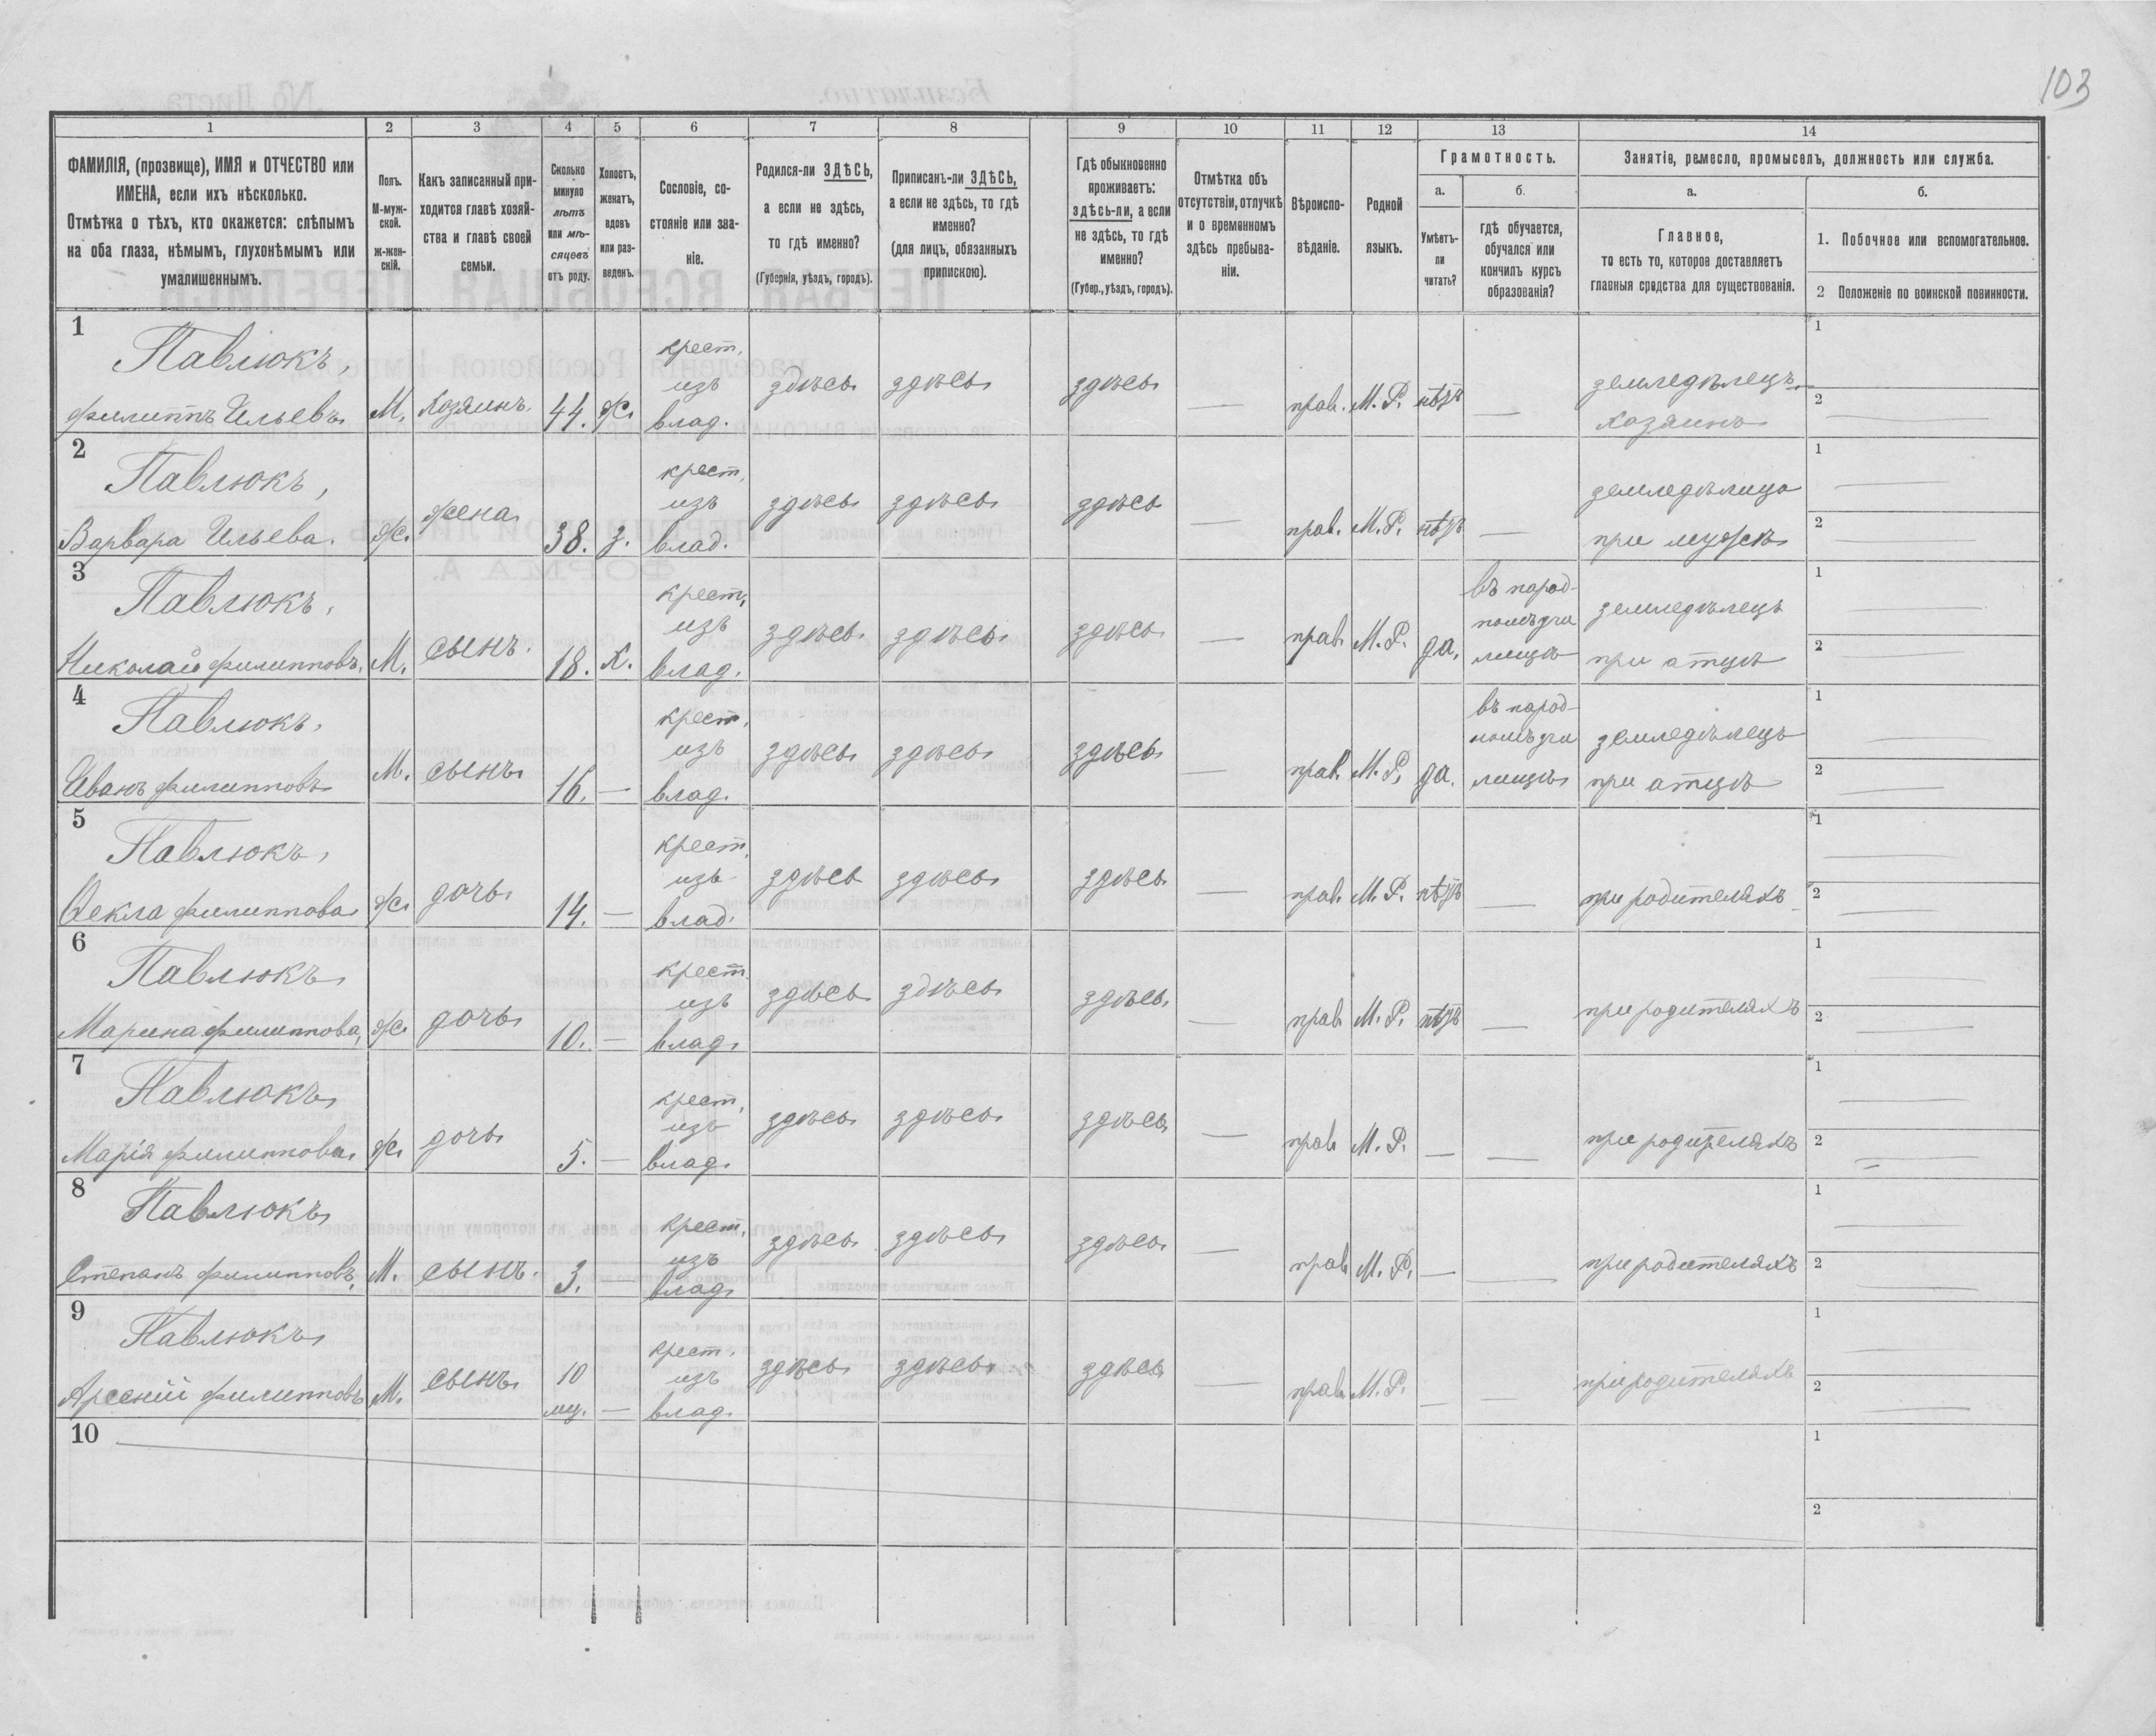 103
1 2 3 4 5 6 7 8 9 10 11 12 13 14
ФАМИЛІЯ, (прозвище), ИМЯ и ОТЧЕСТВО или
ИМЕНА, если ихъ нѣсколько.
Отмѣтка о тѣхъ, кто окажется: слѣпымъ
на оба глаза, нѣмымъ, глухонѣмымъ или
умалишеннымъ.
Полъ.
М-муж-
ской.
ж-жен-
скій.
Какъ записанный при-
ходится главѣ хозяй-
ства и главѣ своей
семьи.
Сколько
минуло
лѣтъ
или мѣ-
сяцевъ
отъ роду.
Холостъ,
женатъ,
вдовъ
или раз-
веденъ.
Сословіе, со-
стояніе или зва-
ніе.
Родился-ли ЗДѢСЬ,
а если не здѣсь,
то гдѣ именно?
(Губернія, уѣздъ, городъ).
Приписанъ-ли ЗДѢСЬ,
а если не здѣсь, то гдѣ
именно?
(для лицъ, обязанныхъ
припискою).
Гдѣ обыкновенно
проживаетъ:
здѣсь-ли, а если
не здѣсь, то гдѣ
именно?
(Губер., уѣздъ, городъ).
Отмѣтка объ
отсутствіи, отлучкѣ
и о временномъ
здѣсь пребыва-
ніи.
Вѣроиспо-
вѣданіе.
Родной
языкъ.
Грамотность.
а.
Умѣетъ-
ли
читать?
б.
гдѣ обучается,
обучался или
кончилъ курсъ
образованія?
Занятіе, ремесло, промыселъ, должность или служба.
а.
Главное,
то есть то, которое доставляетъ
главныя средства для существованія.
б.
1. Побочное или вспомогательное.
2 Положеніе по воинской повинности.
1
Павлюкъ,
Филиппъ Ильевъ М. Хозяинъ. 44. ж. крест. изъ влад. здѣсь здѣсь здѣсь — прав. М. Р. нѣтъ — земледѣлецъ хозяинъ 1 2
2
Павлюкъ,
Варвара Ильева. ж. жена 38. з. крест. изъ влад. здѣсь здѣсь здѣсь — прав. М. Р. нѣтъ — земледѣлица при мужѣ 1 2
3
Павлюкъ,
Николай Филипповъ. М. сынъ. 18. х. крест. изъ влад. здѣсь здѣсь здѣсь — прав. М. Р. да, въ народ- номъ учи лищѣ земледѣлецъ при отцѣ 1 2
4
Павлюкъ,
Иванъ Филипповъ М. сынъ 16. — крест. изъ влад. здѣсь здѣсь здѣсь — прав. М. Р. да. въ народ- номъ учи лищѣ земледѣлецъ при отцѣ 1 2
5
Павлюкъ,
Ѳекла Филиппова ж. дочь 14. — крест. изъ влад. здѣсь здѣсь здѣсь — прав. М. Р. нѣтъ — при родителяхъ 1 2
6
Павлюкъ
Марина Филиппова, ж. дочь 10. — крест. изъ влад. здѣсь здѣсь здѣсь — прав. М. Р. нѣтъ — при родителяхъ 1 2
7
Павлюкъ
Марія Филиппова. ж. дочь 5. — крест. изъ влад. здѣсь здѣсь здѣсь — прав М. Р. — — при родителяхъ 1 2
8
Павлюкъ
Степанъ Филипповъ. М. сынъ. 3. — крест. изъ влад. здѣсь здѣсь здѣсь — прав М. Р. — — при родителяхъ 1 2
9
Павлюкъ
Арсеній Филипповъ М. сынъ 10 мц. — крест. изъ влад. здѣсь здѣсь здѣсь — прав М. Р. — — при родителяхъ 1 2
10 1 2